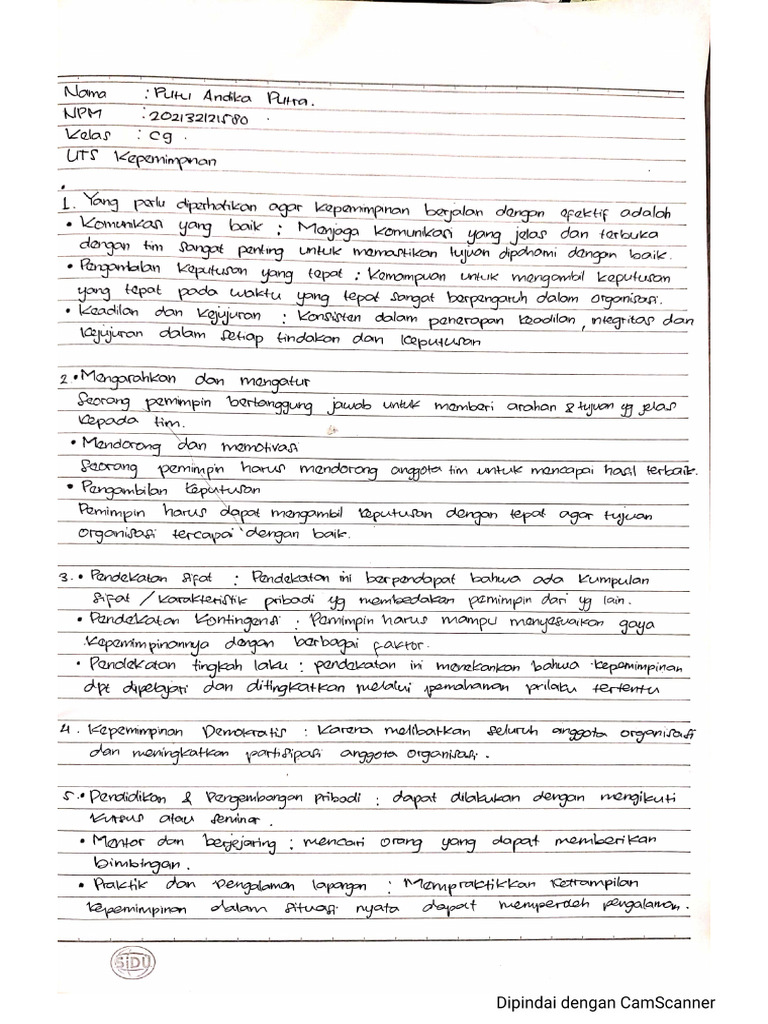 Nama : Putu Andika Putra.
NPM : 202132121580.
Kelas : C9.
UTS Kepemimpinan
1. Yang perlu diperhatikan agar kepemimpinan berjalan dengan efektif adalah
• Komunikasi yang baik : Menjaga komunikasi yang jelas dan terbuka
dengan tim sangat penting untuk memastikan tujuan dipahami dengan baik.
• Pengambilan keputusan yang tepat : Kemampuan untuk mengambil keputusan
yang tepat pada waktu yang tepat sangat berpengaruh dalam organisasi.
• Keadilan dan Kejujuran : Konsisten dalam penerapan keadilan, integritas dan
kejujuran dalam setiap tindakan dan keputusan
2. • Mengarahkan dan mengatur
Seorang pemimpin bertanggung jawab untuk memberi arahan & tujuan yg jelas
kepada tim.
• Mendorong dan memotivasi
Seorang pemimpin harus mendorong anggota tim untuk mencapai hasil terbaik.
• Pengambilan keputusan
Pemimpin harus dapat mengambil keputusan dengan tepat agar tujuan
organisasi tercapai dengan baik.
3. • Pendekatan sifat : Pendekatan ini berpendapat bahwa ada kumpulan
sifat / karakteristik pribadi yg membedakan pemimpin dari yg lain.
• Pendekatan Kontingensi : Pemimpin harus mampu menyesuaikan gaya
kepemimpinannya dengan berbagai faktor.
• Pendekatan tingkah laku : pendekatan ini menekankan bahwa kepemimpinan
dpt dipelajari dan ditingkatkan melalui pemahaman prilaku tertentu
4. Kepemimpinan Demokratis : Karena melibatkan seluruh anggota organisasi
dan meningkatkan partisipasi anggota organisasi.
5. • Pendidikan & Pengembangan pribadi : dapat dilakukan dengan mengikuti
kursus atau seminar.
• Mentor dan berjejaring : mencari orang yang dapat memberikan
bimbingan.
• Praktik dan Pengalaman lapangan : Mempraktikkan ketrampilan
kepemimpinan dalam situasi nyata dapat memperoleh pengalaman.
SIDU
Dipindai dengan CamScanner